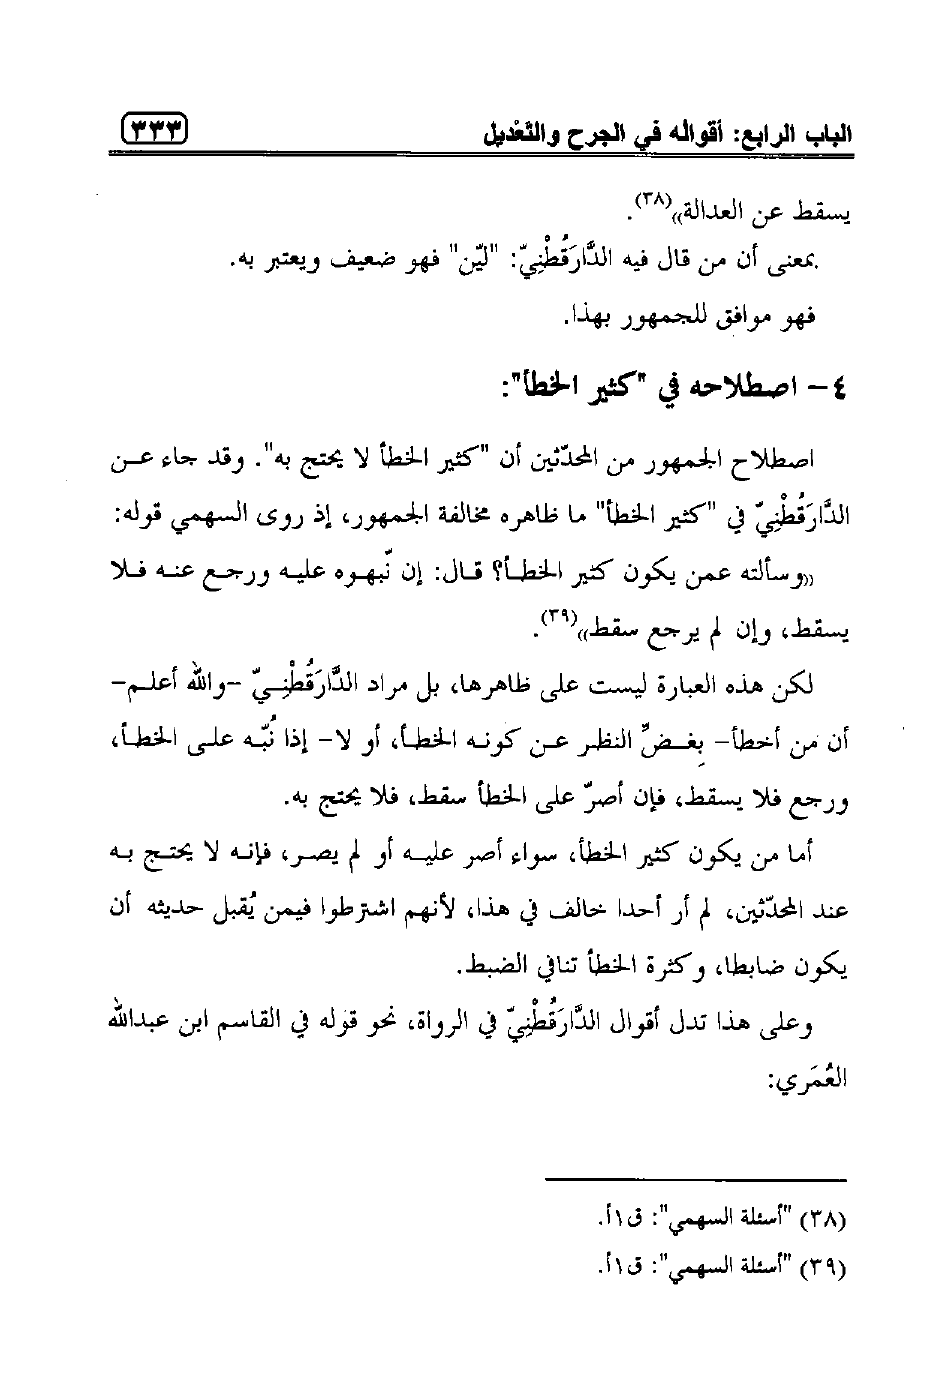 الباب الرابع: أقواله في الجرح والتّعْديل ٣٣٣
يسقط عن العدالة))(٣٨).
بمعنى أن من قال فيه الدَّارَقُطْنِيّ: "ليّن" فهو ضعيف ويعتبر به.
فهو موافق للجمهور بهذا.
٤- اصطلاحه في "كثير الخطأ":
اصطلاح الجمهور من المحدّثين أن "كثير الخطأ لا يحتج به". وقد جاء عن
الدَّارَقُطْنِيّ في "كثير الخطأ" ما ظاهره مخالفة الجمهور، إذ روى السهمي قوله:
((وسألته عمن يكون كثير الخطأ؟ قال: إن نّبهوه عليه ورجع عنه فلا
يسقط، وإن لم يرجع سقط))(٣٩).
لكن هذه العبارة ليست على ظاهرها، بل مراد الدَّارَقُطْنِيّ -والله أعلم-
أن من أخطأ- بغضِّ النظر عن كونه الخطأ، أو لا- إذا نُبّه على الخطأ،
ورجع فلا يسقط، فإن أصرّ على الخطأ سقط، فلا يحتج به.
أما من يكون كثير الخطأ، سواء أصر عليه أو لم يصر، فإنه لا يحتج به
عند المحدّثين، لم أر أحدا خالف في هذا، لأنهم اشترطوا فيمن يُقبل حديثه أن
يكون ضابطا، وكثرة الخطأ تنافي الضبط.
وعلى هذا تدل أقوال الدَّارَقُطْنِيّ في الرواة، نحو قوله في القاسم ابن عبدالله
العُمَري:
(٣٨) "أسئلة السهمي": ق١أ.
(٣٩) "أسئلة السهمي": ق١أ.